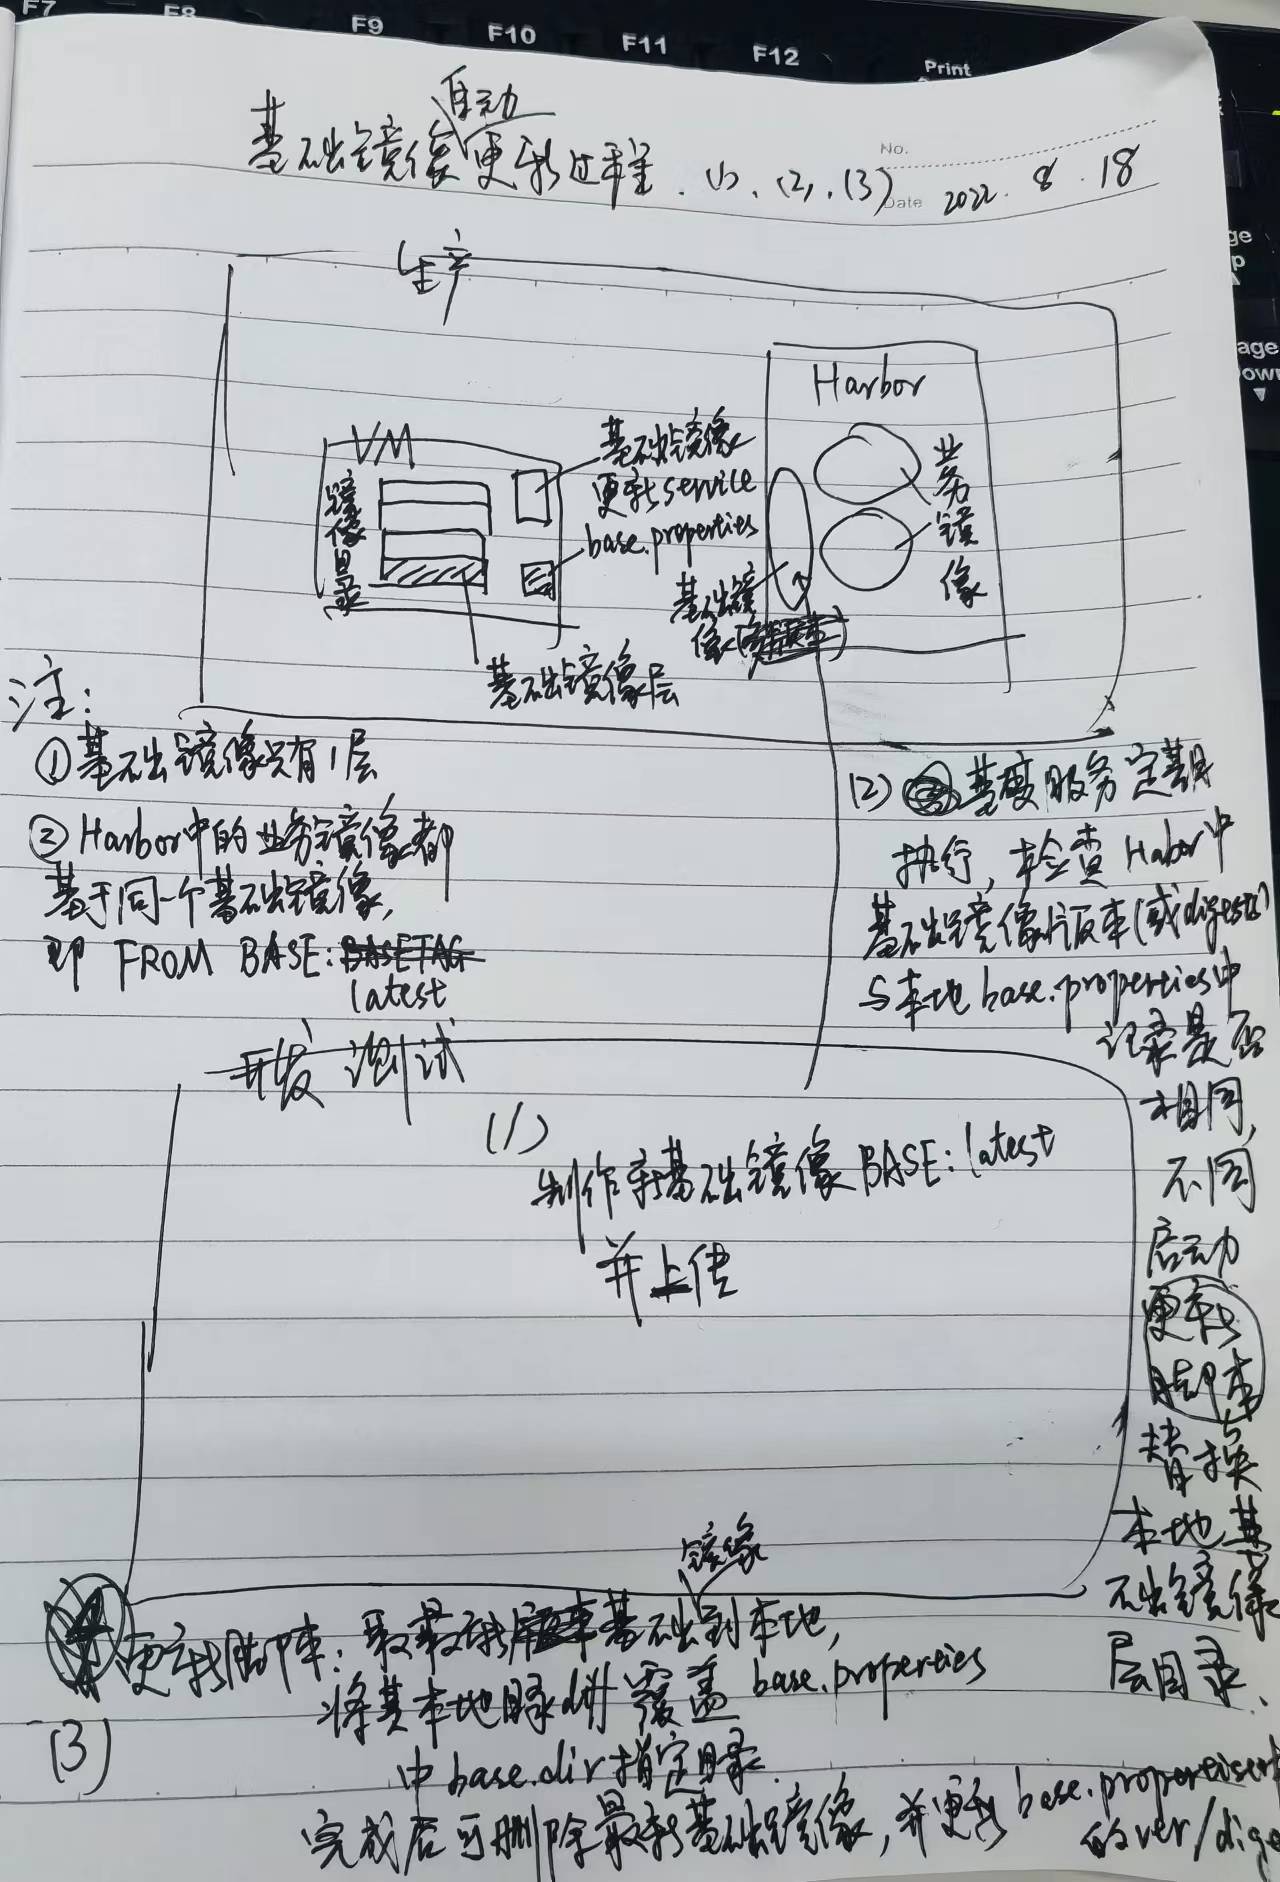 F7
F8
F9
F10
F11
F12
Print
自动
基础镜像更新过程. (1)、(2)、(3)
No.
Date 2022. 8. 18
生产
Harbor
VM
镜像目录
基础镜像
更新service
base.properties
业务镜像
基础镜
像
基础镜像层
注:
①基础镜像只有1层
②Harbor中的业务镜像都
基于同一个基础镜像,
即 FROM BASE: BASETAG
latest
(2) 基度服务定期
执行, 检查 Habor中
基础镜像版本(或digests)
与本地 base.properties中
记录是否
相同,
不同
启动
更新
脚本
替换
本地基
础镜像
层目录.
开发 测试
(1)
制作新基础镜像 BASE: latest
并上传
镜像
更新脚本: 取最新 基础到本地,
将其本地目录 覆盖 base.properties
(3)
中 base.dir指定目录.
完成后可删除最新基础镜像, 并更新 base.properties
的ver/dige